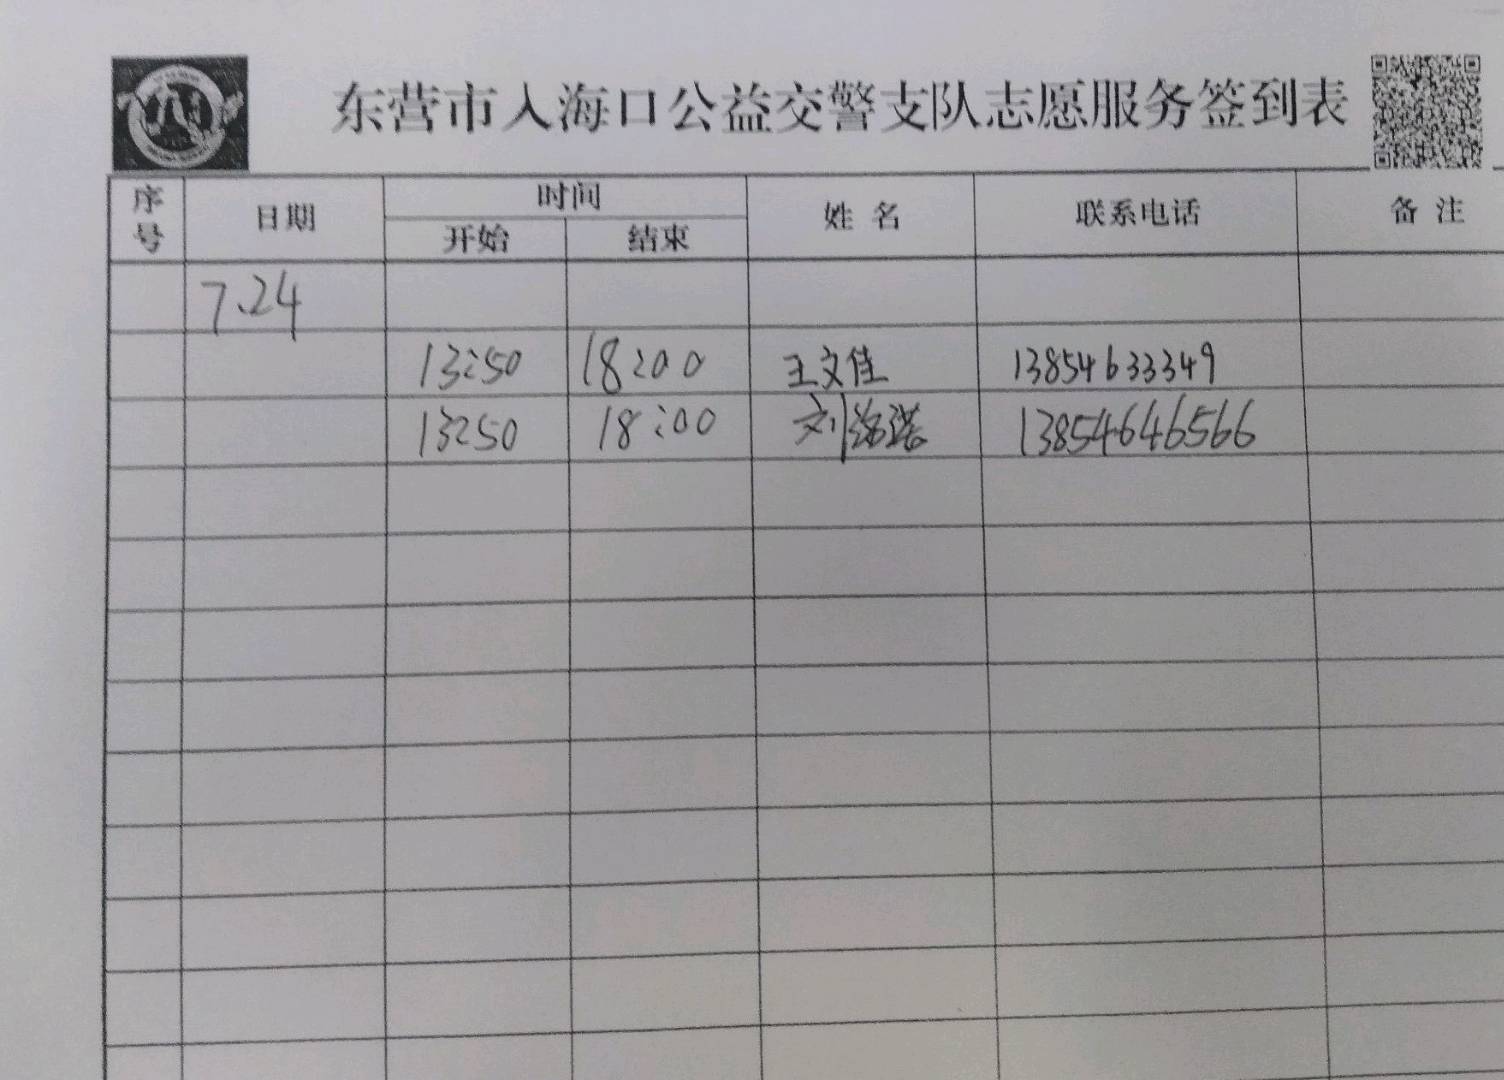 东营市入海口公益交警支队志愿服务签到表
序号 日期 时间 姓名 联系电话 备注
开始 结束
7.24
13:50 18:00 王文佳 13854633349
13:50 18:00 刘洺诺 13854646566